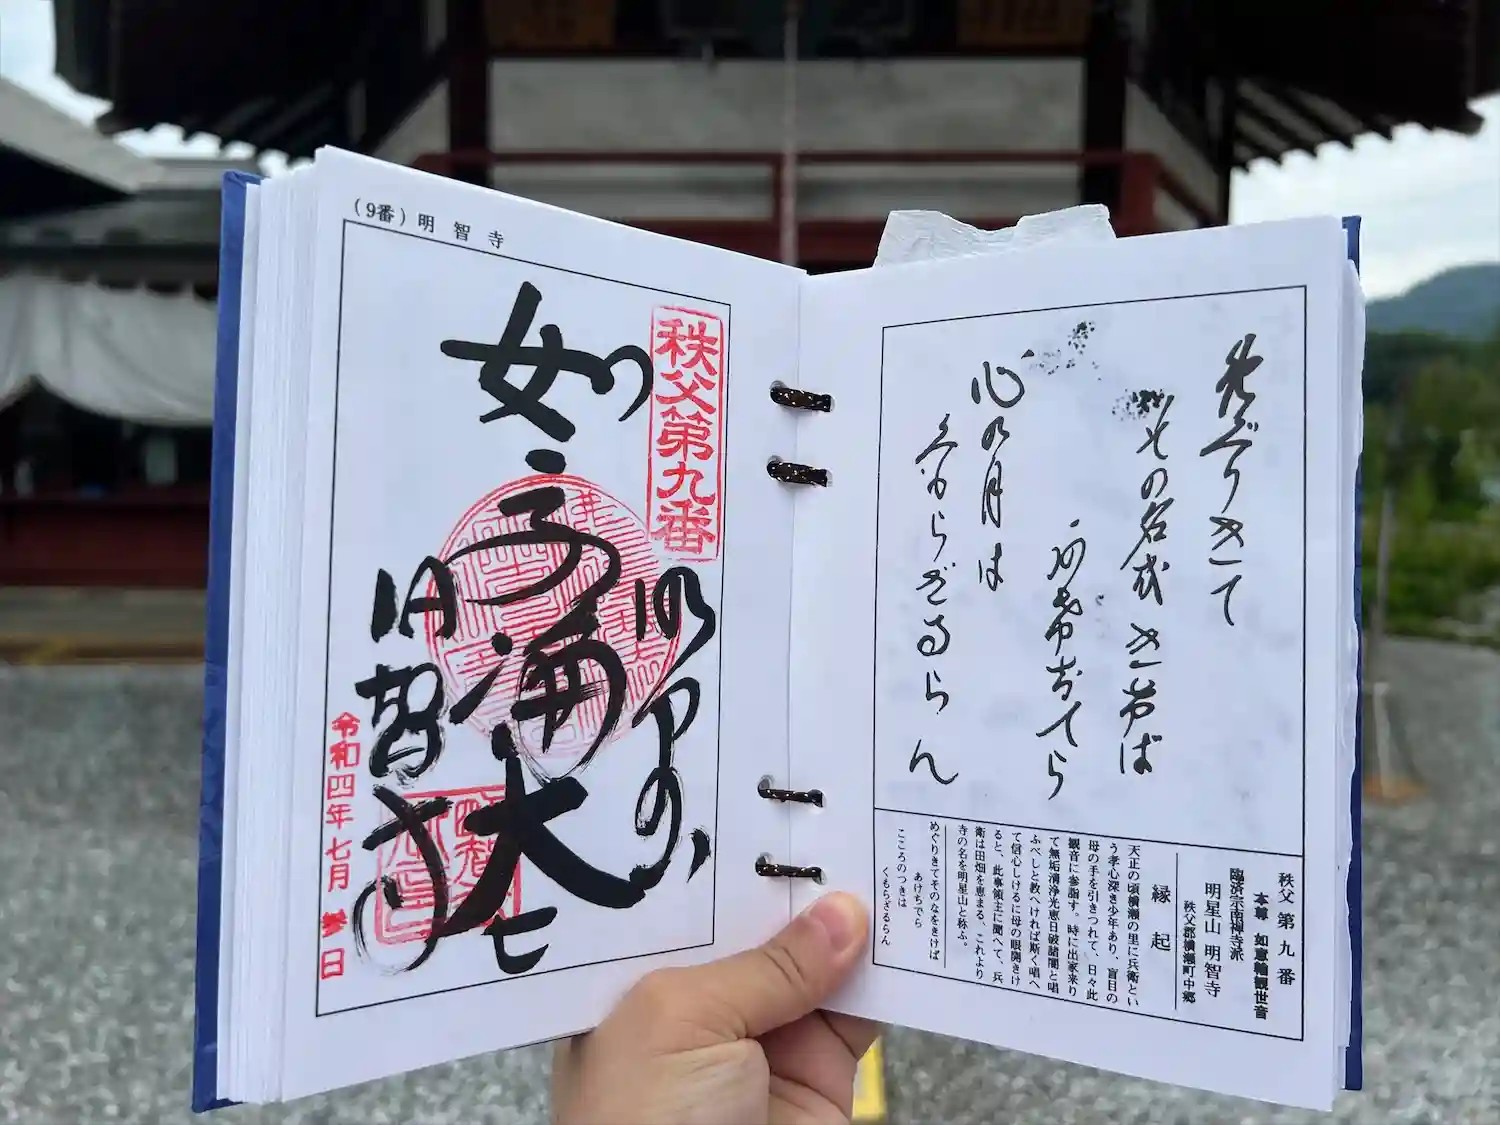 (9番) 明智寺
秩父第九番
如意輪大士
明智寺
令和四年七月参日
めぐりきて
その名をきけば
あけちてら
心の月は
くもらざるらん
秩父第九番
本尊 如意輪観世音
臨済宗南禅寺派
明星山 明智寺
秩父郡横瀬町中郷
縁起
天正の頃横瀬の里に兵衛とい
う孝心深き少年あり、盲目の
母の手を引きつれて、日々此
観音に参詣す。時に出家来り
て無垢清浄光恵日破諸闇と唱
ふべしと教へければ斯く唱へ
て信心しけるに母の眼開きけ
ると、此事領主に聞へて、兵
衛は田畑を恵まる、これより
寺の名を明星山と称ふ。
めぐりきてそのなをきけば
あけちでら
こころのつきは
くもらざるらん